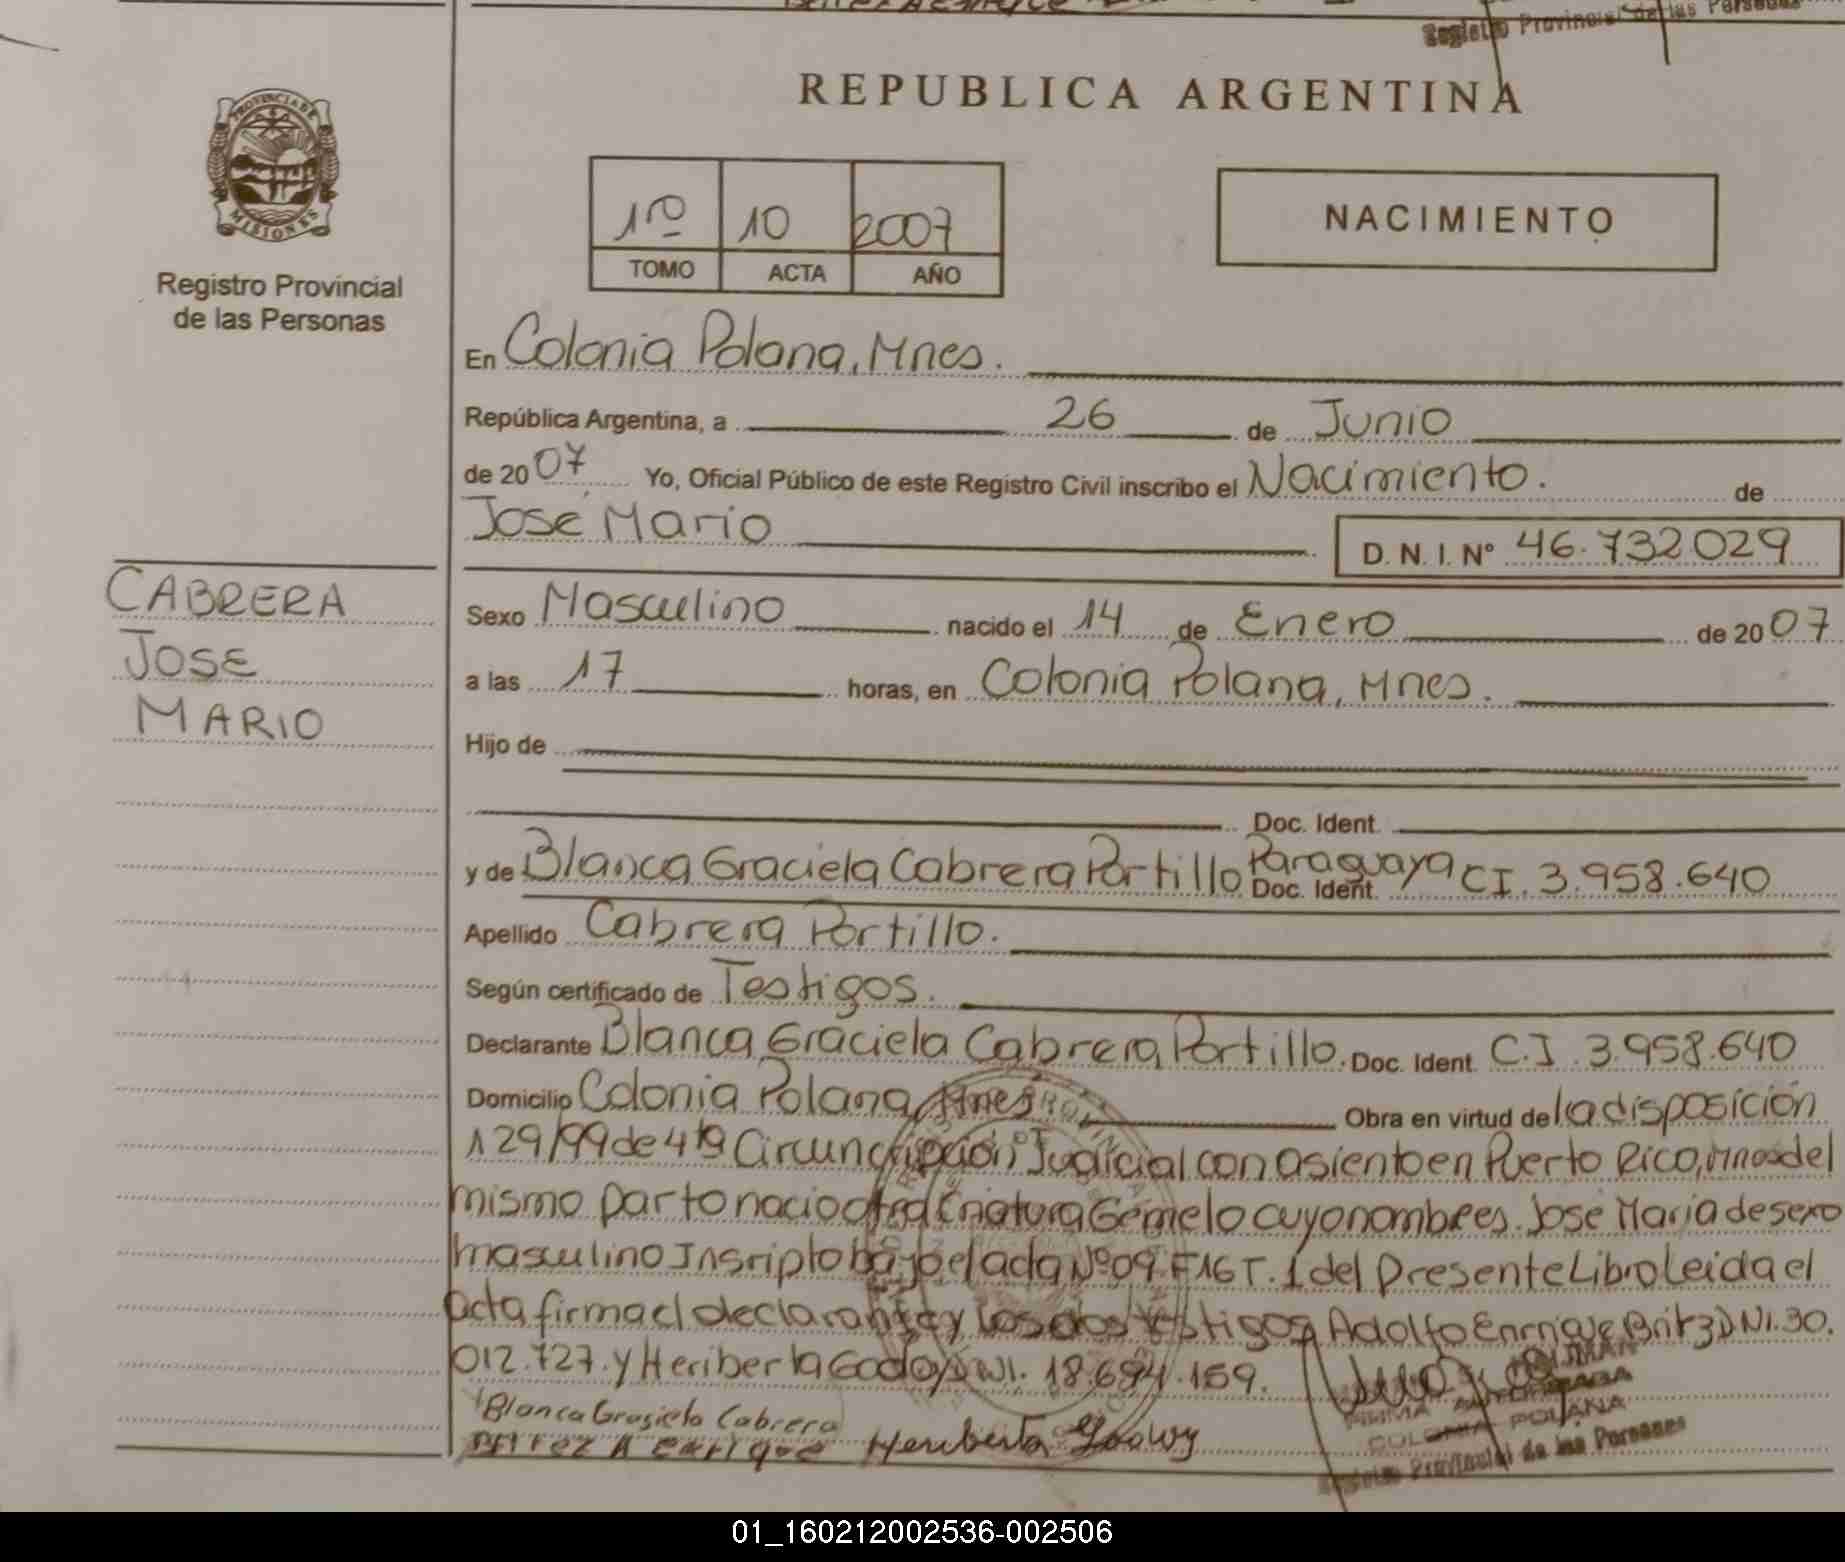 Registro Provincial de las Personas
REPUBLICA ARGENTINA
PROVINCIA DE
MISIONES
Registro Provincial
de las Personas
1ro 10 2007
TOMO ACTA AÑO
NACIMIENTO
En Colonia Polana, Mnes.
República Argentina, a 26 de Junio
de 2007 Yo, Oficial Público de este Registro Civil inscribo el Nacimiento. de
José Mario D.N.I. Nº 46.732029
CABRERA
JOSE
MARIO
Sexo Masculino nacido el 14 de Enero de 2007
a las 17 horas, en Colonia Polana, Mnes.
Hijo de
Doc. Ident.
y de Blanca Graciela Cabrera Portillo Doc. Ident. Paraguaya CI. 3.958.640
Apellido Cabrera Portillo.
Según certificado de Testigos.
Declarante Blanca Graciela Cabrera Portillo. Doc. Ident. C.I. 3.958.640
Domicilio Colonia Polana, Mnes Obra en virtud de la disposición
129/99 de 4ta Circuncripción Judicial con asiento en Puerto Rico, Mnes del
mismo parto nacio otra Criatura Gemelo cuyo nombre es. José María de sexo
masculino Inscripto bajo el acta Nº 09 F16 T. 1 del Presente Libro Leida el
acta firma el declarante y los dos testigos Adolfo Enrrique Britz D Ni. 30.
012.727. y Heriberta Godoy D Ni. 18.684.159.
Blanca Grasiela Cabrera
Britez A enrique Heriberta Godoy
FIRMA AUTORIZADA
COLONIA POLANA
Registro Provincial de las Personas
01_160212002536-002506